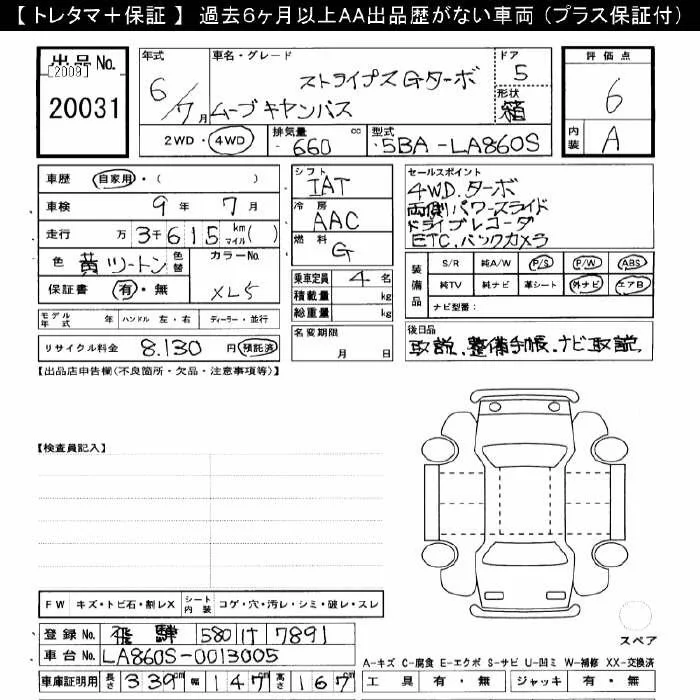 【 トレタマ＋保証 】 過去6ヶ月以上AA出品歴がない車両 (プラス保証付)
出品No.
[2009]
20031
年式 車名・グレード ドア 評価点
6/7月 ストライプスGターボ 5 6
ムーブキャンバス 形状 箱
2WD・4WD 排気量 660 cc 型式 5BA-LA860S 内装 A
車歴 自家用・( )
車検 9年 7月
走行 万 3千615 km マイル( )
色 黄ツートン 色替 カラーNo. XL5
保証書 有・無
モデル年式 年 ハンドル 左・右 ディーラー・並行
リサイクル料金 8,130 円 預託済
シフト IAT
冷房 AAC
燃料 G
乗車定員 4 名
積載量 kg
総重量 kg
名変期限
月 日
セールスポイント
4WD.ターボ
両側パワースライド
ドライブレコーダ
ETC.バックカメラ
装備品 S/R 純A/W P/S P/W ABS
純TV 純ナビ 革シート 外ナビ エアB
ナビ型番:
後日品
取説、整備手帳、ナビ取説
【出品店申告欄(不良箇所・欠品・注意事項等)】
【検査員記入】
FW キズ・トビ石・割レX シート内装 コゲ・穴・汚レ・シミ・破レ・スレ
登録No. 飛騨 580 け 7891
車台No. LA860S-0013005
車庫証明用 長さ 339cm 幅 147cm 高さ 167cm
スペア
A-キズ C-腐食 E-エクボ S-サビ U-凹ミ W-補修 XX-交換済
工具 有・無 ジャッキ 有・無